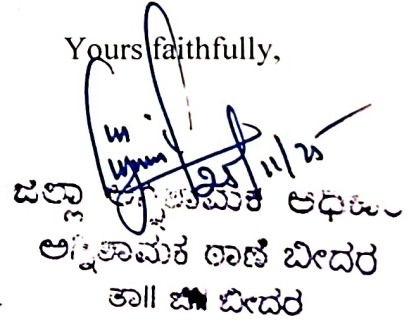 Yours faithfully,
25/11/25
ಜಿಲ್ಲಾ ಅಗ್ನಿಶಾಮಕ ಅಧಿಕಾರಿ
ಅಗ್ನಿಶಾಮಕ ಠಾಣೆ ಬೀದರ
ತಾ|| ಜಿ|| ಬೀದರ